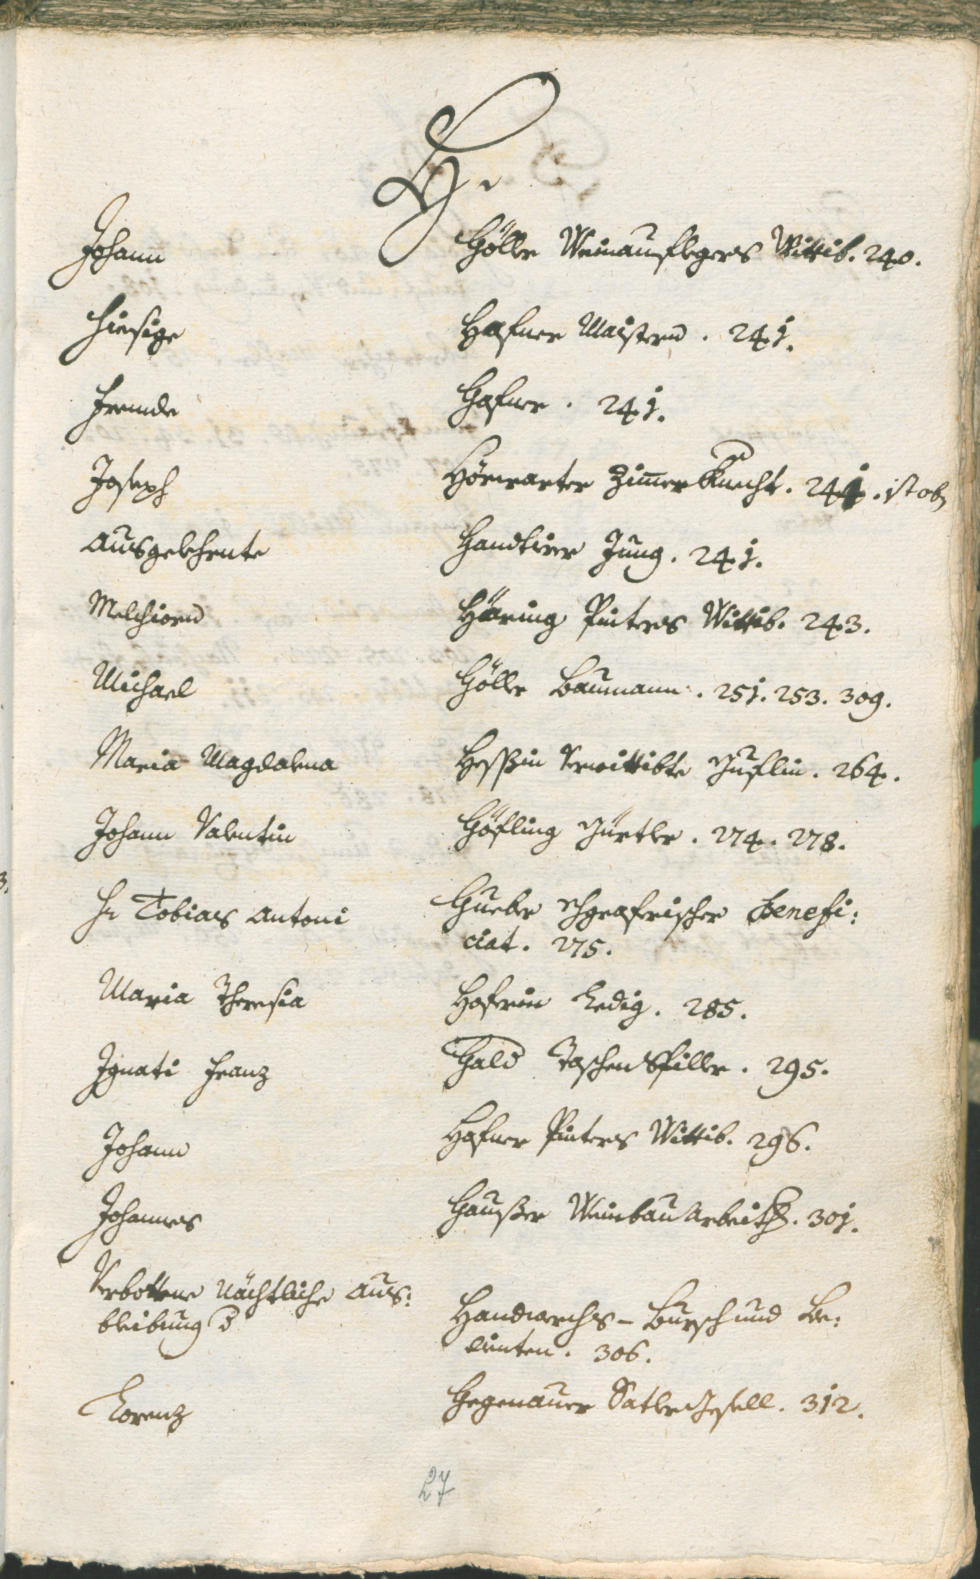 H.
Johann Höller Weinauflegers Wittib. 240.
hiesige Hafner Maistern. 241.
fremde Hafner. 241.
Joseph Zimmer Knecht. 241.
Ausgelehrnte Jung. 241.
Melchiorn Häring Pinters Wittib. 243.
Michael Höller Baumann. 251. 253. 309.
Maria Magdalena Hessin Verwittibte 264.
Johann Valentin Höfling Gürtler. 274. 278.
Hr Tobias Antoni Hueber Benefi:
ciat. 275.
Maria Theresia Hoferin Ledig. 285.
Ignati Franz Hald Taschenspiller. 295.
Johann Hafner Pinters Wittib. 296.
Johannes Haußer Weinbau Arbeith. 301.
Verbottene Nächtliche Aus:
bleibung d Handwerchs-Bursch und Be:
dienten. 306.
Lorenz Hegenauer Satler Gesell. 312.
27